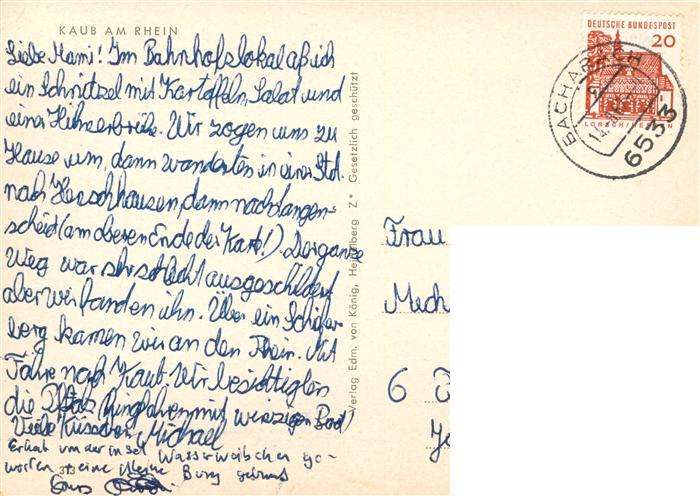 KAUB AM RHEIN
Liebe Mami! Im Bahnhofslokal aß ich
ein Schnitzel mit Kartoffeln, Salat und
einer Hühnerbrühe. Wir zogen uns zu
Hause um, dann wanderten in einer Std.
nach Henschhausen, dann nach Langen-
scheid (am oberen Ende der Karte!). Der ganze
Weg war sehr schlecht ausgeschildert
aber wir fanden ihn. Über ein Schiefer-
berg kamen wir an den Rhein. Mit
Fähre nach Kaub. Wir besichtigten
die Pfalz (hingefahren mit winzigen Boot)
Viele Küsschen Michael
Erhab von der Insel Wasserweibchen ge-
worfen 313 eine kleine Burg gebaut
Verlag Edm. von König, Heidelberg Z* Gesetzlich geschützt
DEUTSCHE BUNDESPOST
20
LORSCH/HESSEN
BACHARACH
6533
Frau
Mech
6